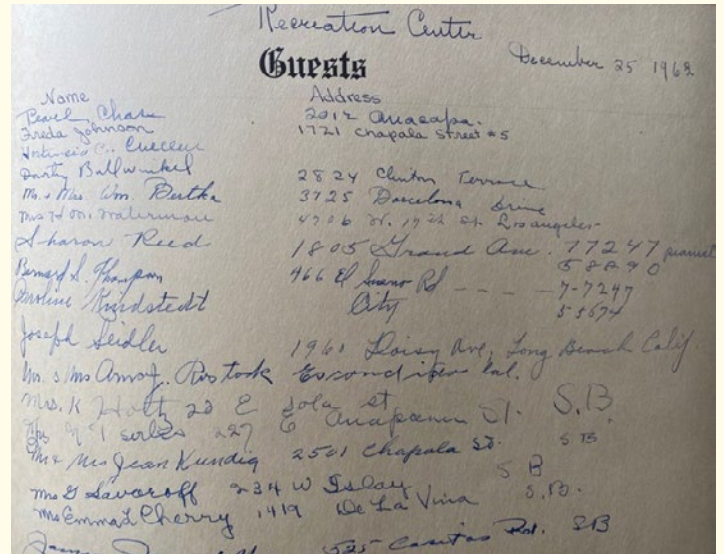 Recreation Center
Guests
December 25 1962
Name Address
Pearl Chase 2012 Anacapa.
Freda Johnson 1721 Chapala Street #5
Hortencia C.
Dorothy Ballwinkel 2824 Clinton Terrace
Mr. & Mrs. Wm. Bertka 3725 Barcelona Drive
Waterman 4706 W. 19th St. Los Angeles
Sharon Reed 1805 Grand Ave. 77247 pianist
58890
Bernard S. Thompson 466 El Sueno Rd - - - - 7-7247
Caroline Kindstedt City 55674
Joseph Seidler 1961 Daisy Ave, Long Beach Calif.
Mr. & Mrs Rostock Escondido Cal.
Mrs. K Holth 20 E Sola St
227 E Anapamu St. S.B.
Mr & Mrs Jean Kundig 2501 Chapala St. SB
Mrs G Savoroff 234 W Islay SB
Mrs Emma L Cherry 1419 De La Vina S.B.
525 Casitas Rd. SB